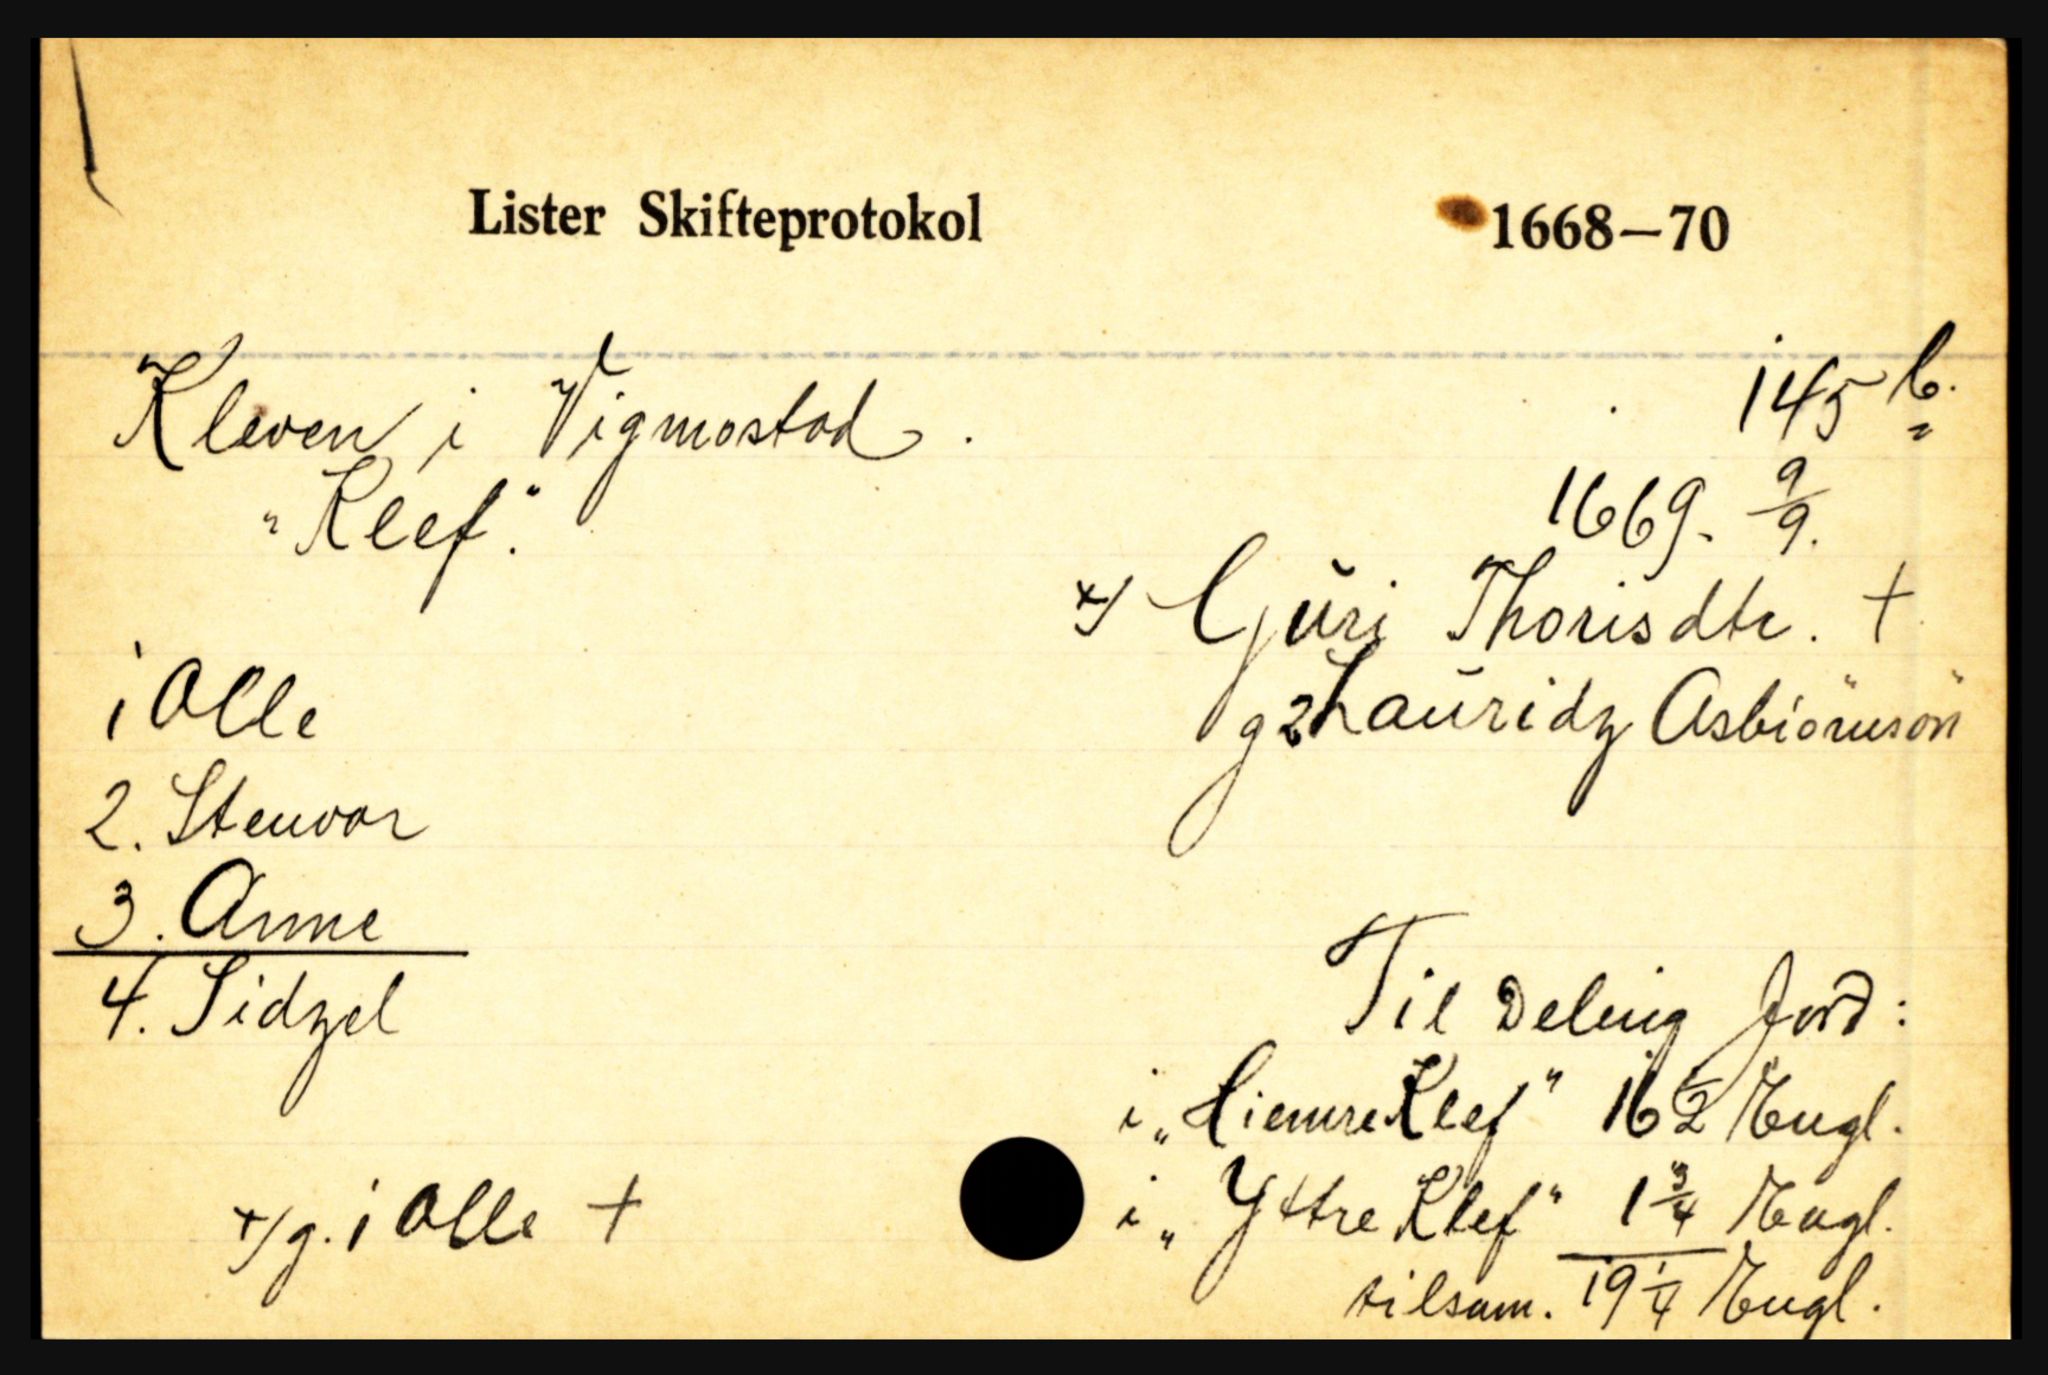 Lister Skifteprotokol 1668—70
Kleven i Vigmostad. 145 b.
"Kleef." 1669. 9/9.
x/ Guri Thorisdtr. +
g2 Lauridz Asbiörnsön"
1 Olle
2. Stenvor
3. Anne
4. Sidzel
Til Deling Jord:
i "HiemreKleef" 16 1/2 Engl.
i "Yttre Klef" 1 3/4 Engl.
tilsam. 19 1/4 Engl.
x/ g. 1 Olle +